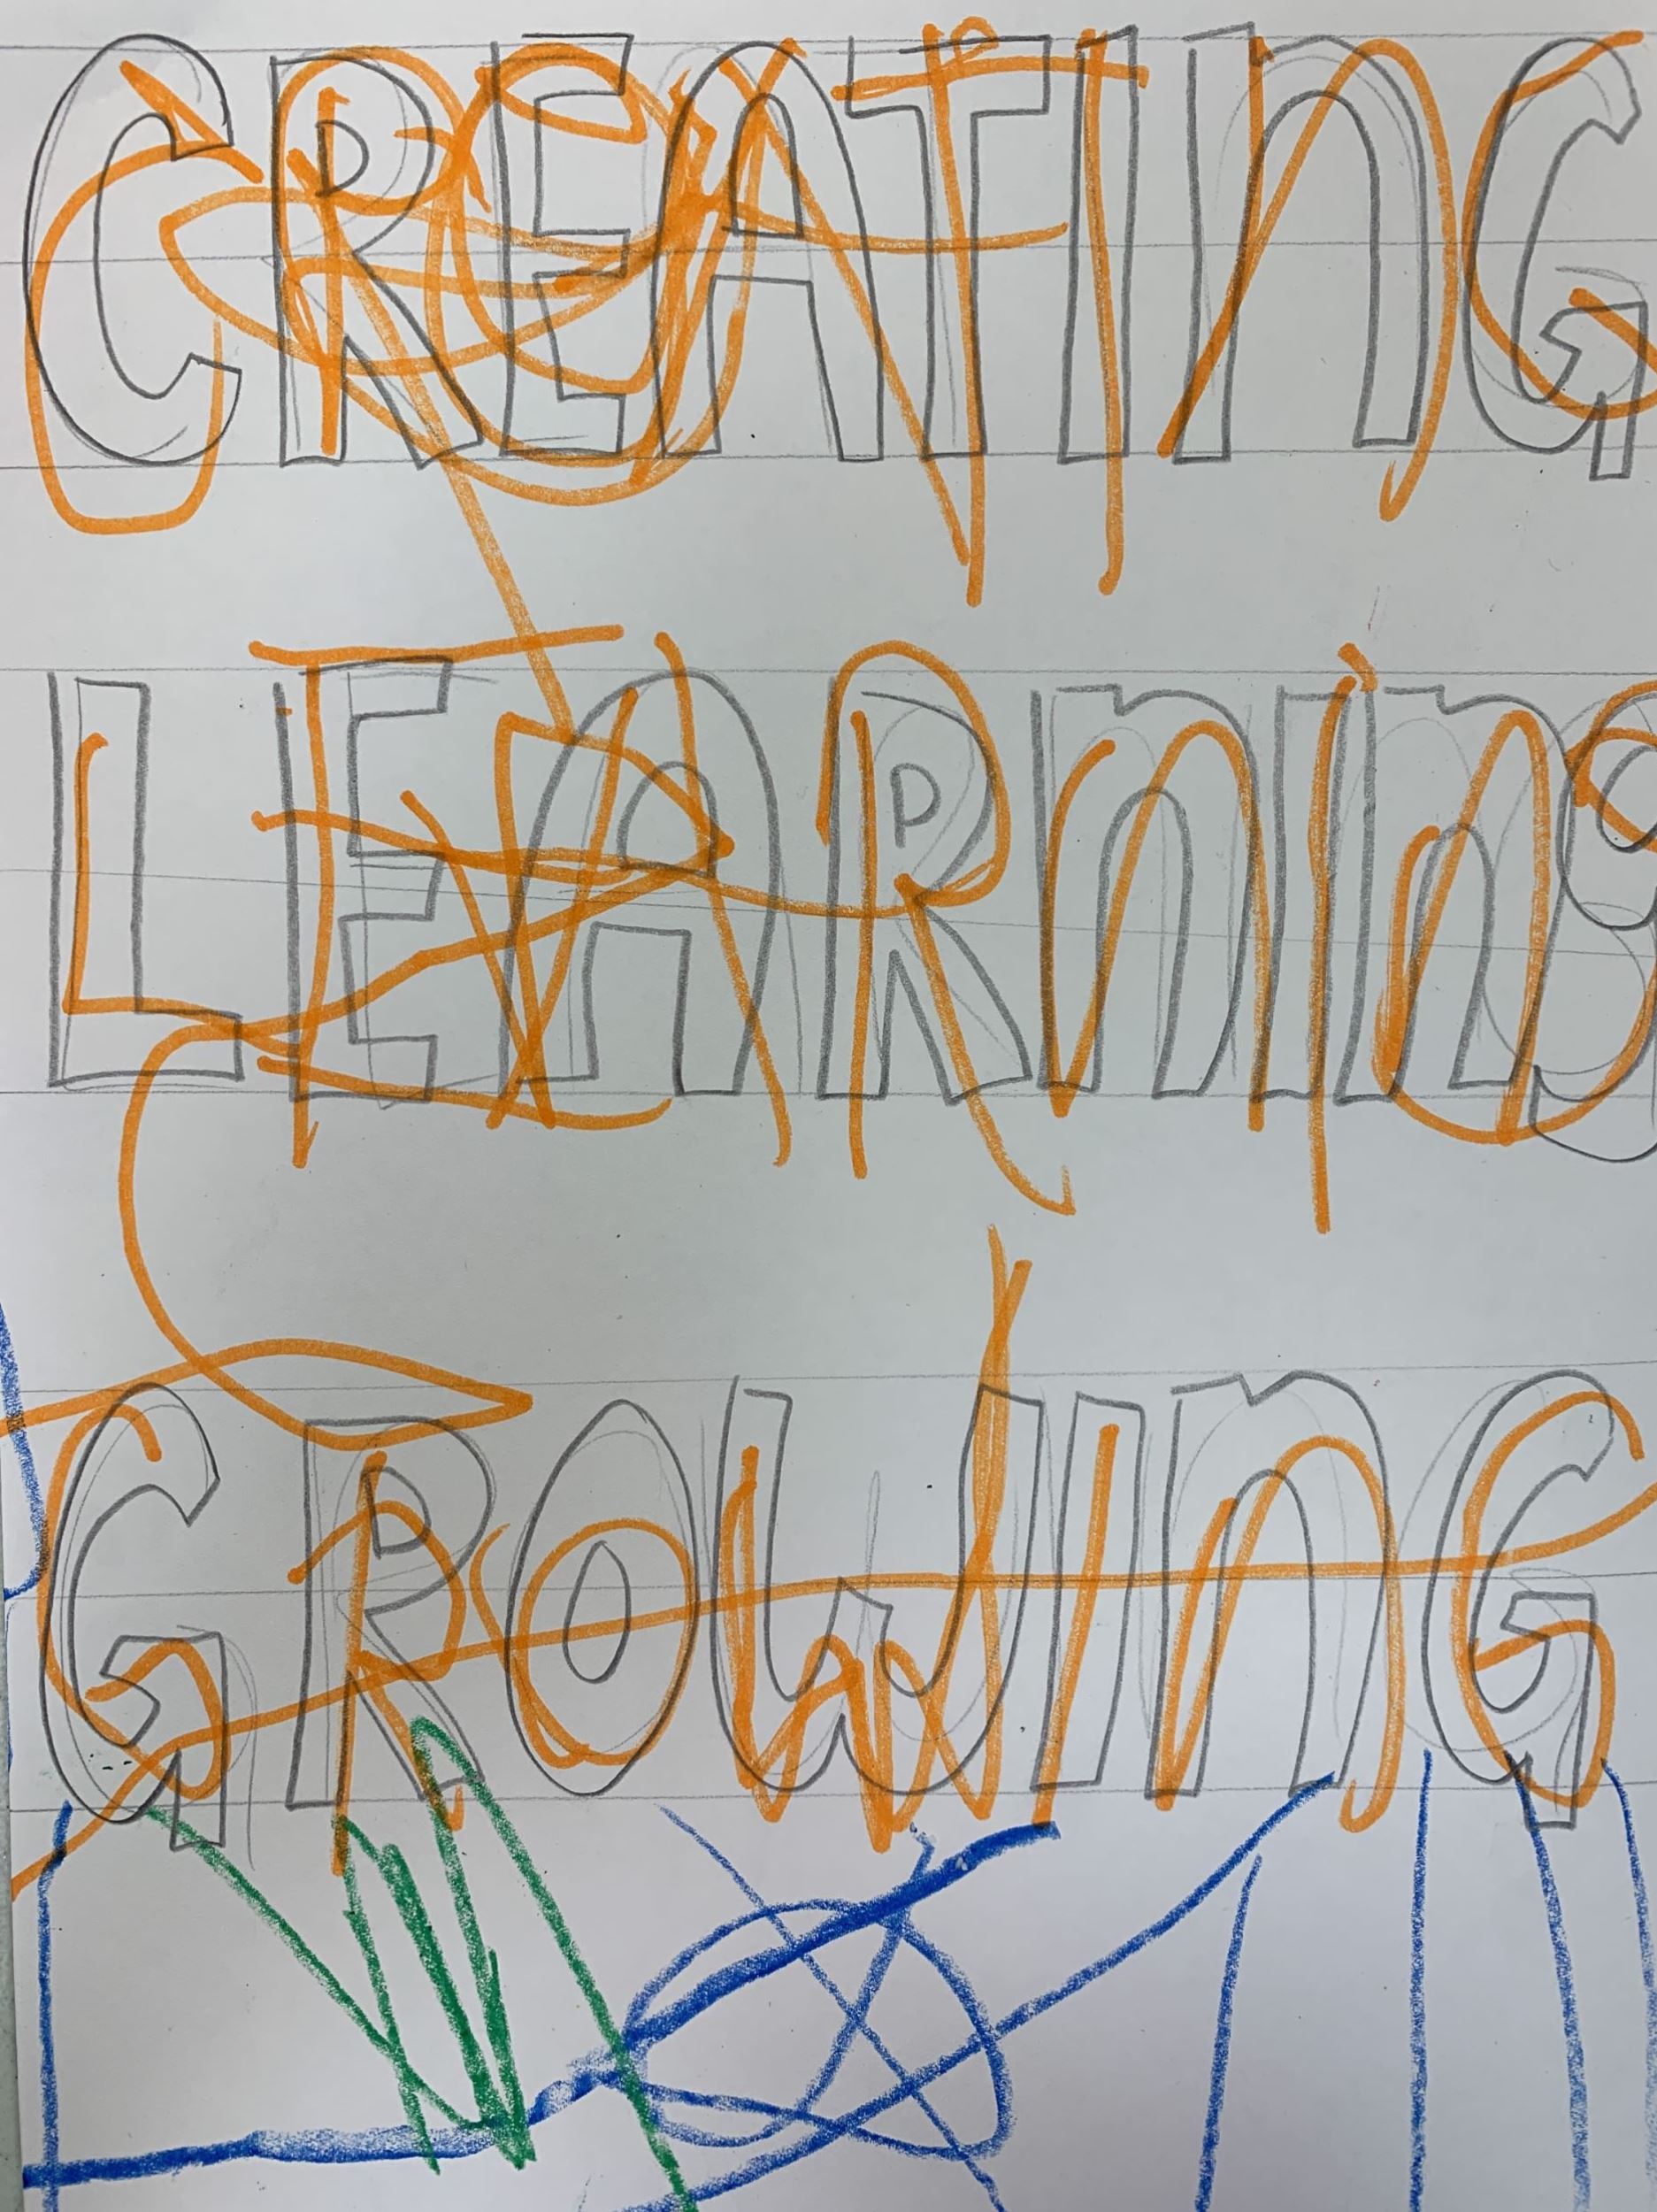 CREATInG
LEARnIng
GROWInG